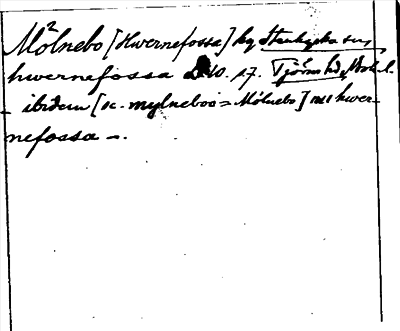 Mölnebo [Hwernefossa] hg Stenkyrka sn,
hwernefossa 10. 17. Tjörns hd,
– ibidem [sc. mylneboo = Mölnebo] hwer-
nefossa –.